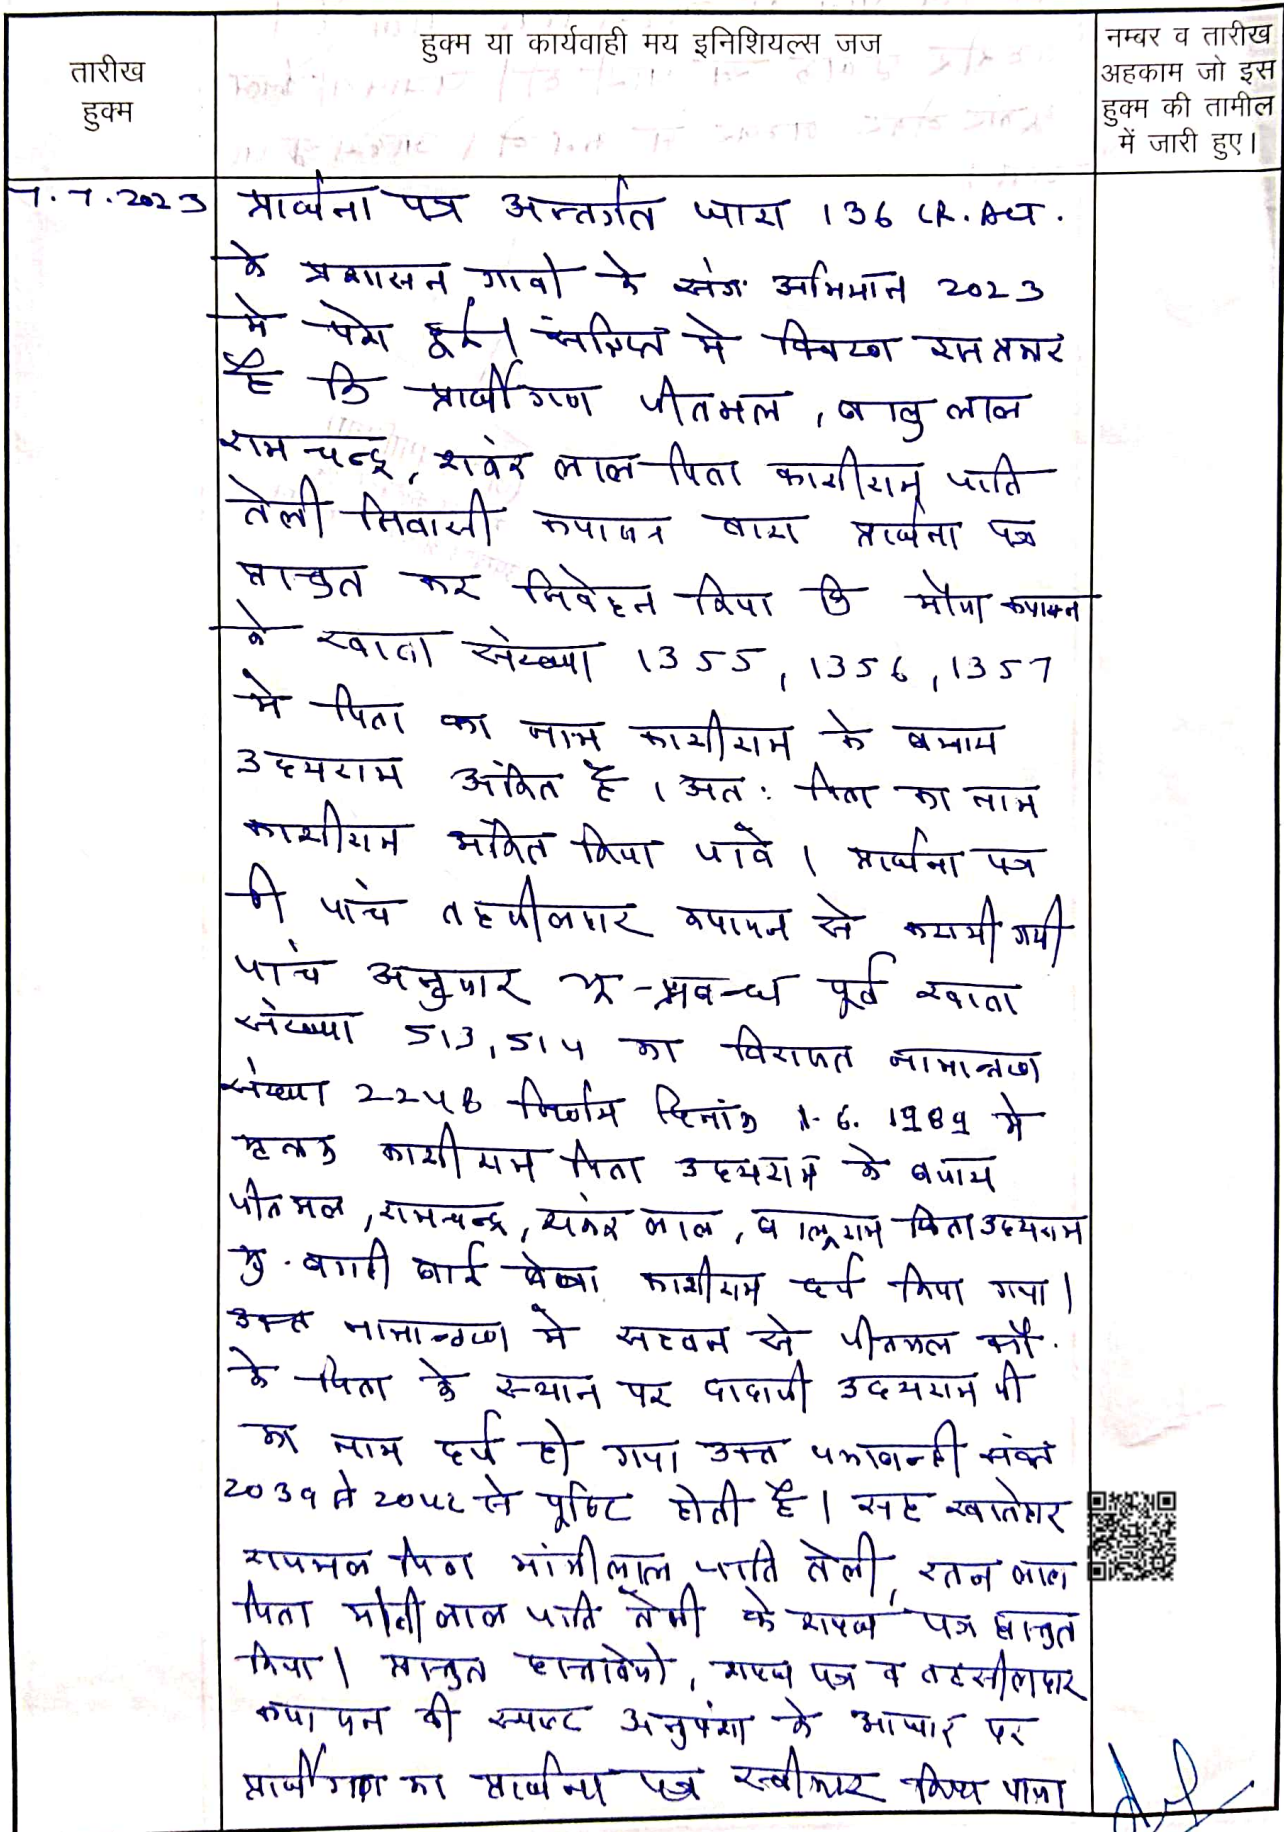 तारीख
हुक्म
हुक्म या कार्यवाही मय इनिशियल्स जज
नम्बर व तारीख
अहकाम जो इस
हुक्म की तामील
में जारी हुए।
7.7.2023 प्रार्थना पत्र अन्तर्गत धारा 136 LR. Act.
के प्रशासन गावो के संग अभियान 2023
मे पेश हुई। संक्षिप्त मे विवरण इस प्रकार
है कि प्रार्थीगण पीतमल, बालु लाल
रामचन्द्र, शंकर लाल पिता काशीराम जाति
तेली निवासी कपासन द्वारा प्रार्थना पत्र
प्रस्तुत कर निवेदन किया कि मौजा कपासन
के खाता संख्या 1355, 1356, 1357
मे पिता का नाम काशीराम के बजाय
उदयराम अंकित है। अत: पिता का नाम
काशीराम अंकित किया जावे। प्रार्थना पत्र
की जांच तहसीलदार कपासन से करायी गयी
जांच अनुसार भू-प्रबन्ध पूर्व खाता
संख्या 513, 514 का विरासत नामान्तरण
संख्या 2248 निर्णय दिनांक 1.6.1989 मे
मृतक काशीराम पिता उदयराम के बजाय
पीतमल, रामचन्द्र, शंकर लाल, बालूराम पिता उदयराम
मु. बगदी बाई बेवा काशीराम दर्ज किया गया।
उक्त नामान्तरण मे से पीतमल
के पिता के स्थान पर दादाजी उदयराम जी
का नाम दर्ज हो गया उक्त जमाबन्दी संवत
2039 से 2042 से पुष्टि होती है। सह खातेदार
पिता मांगीलाल जाति तेली, रतन लाल
पिता मोती लाल जाति तेली के शपथ पत्र प्रस्तुत
किया। प्रस्तुत दस्तावेजो, शपथ पत्र व तहसीलदार
कपासन की स्पष्ट अनुशंषा के आधार पर
प्रार्थीगण का प्रार्थना पत्र स्वीकार किया जाता